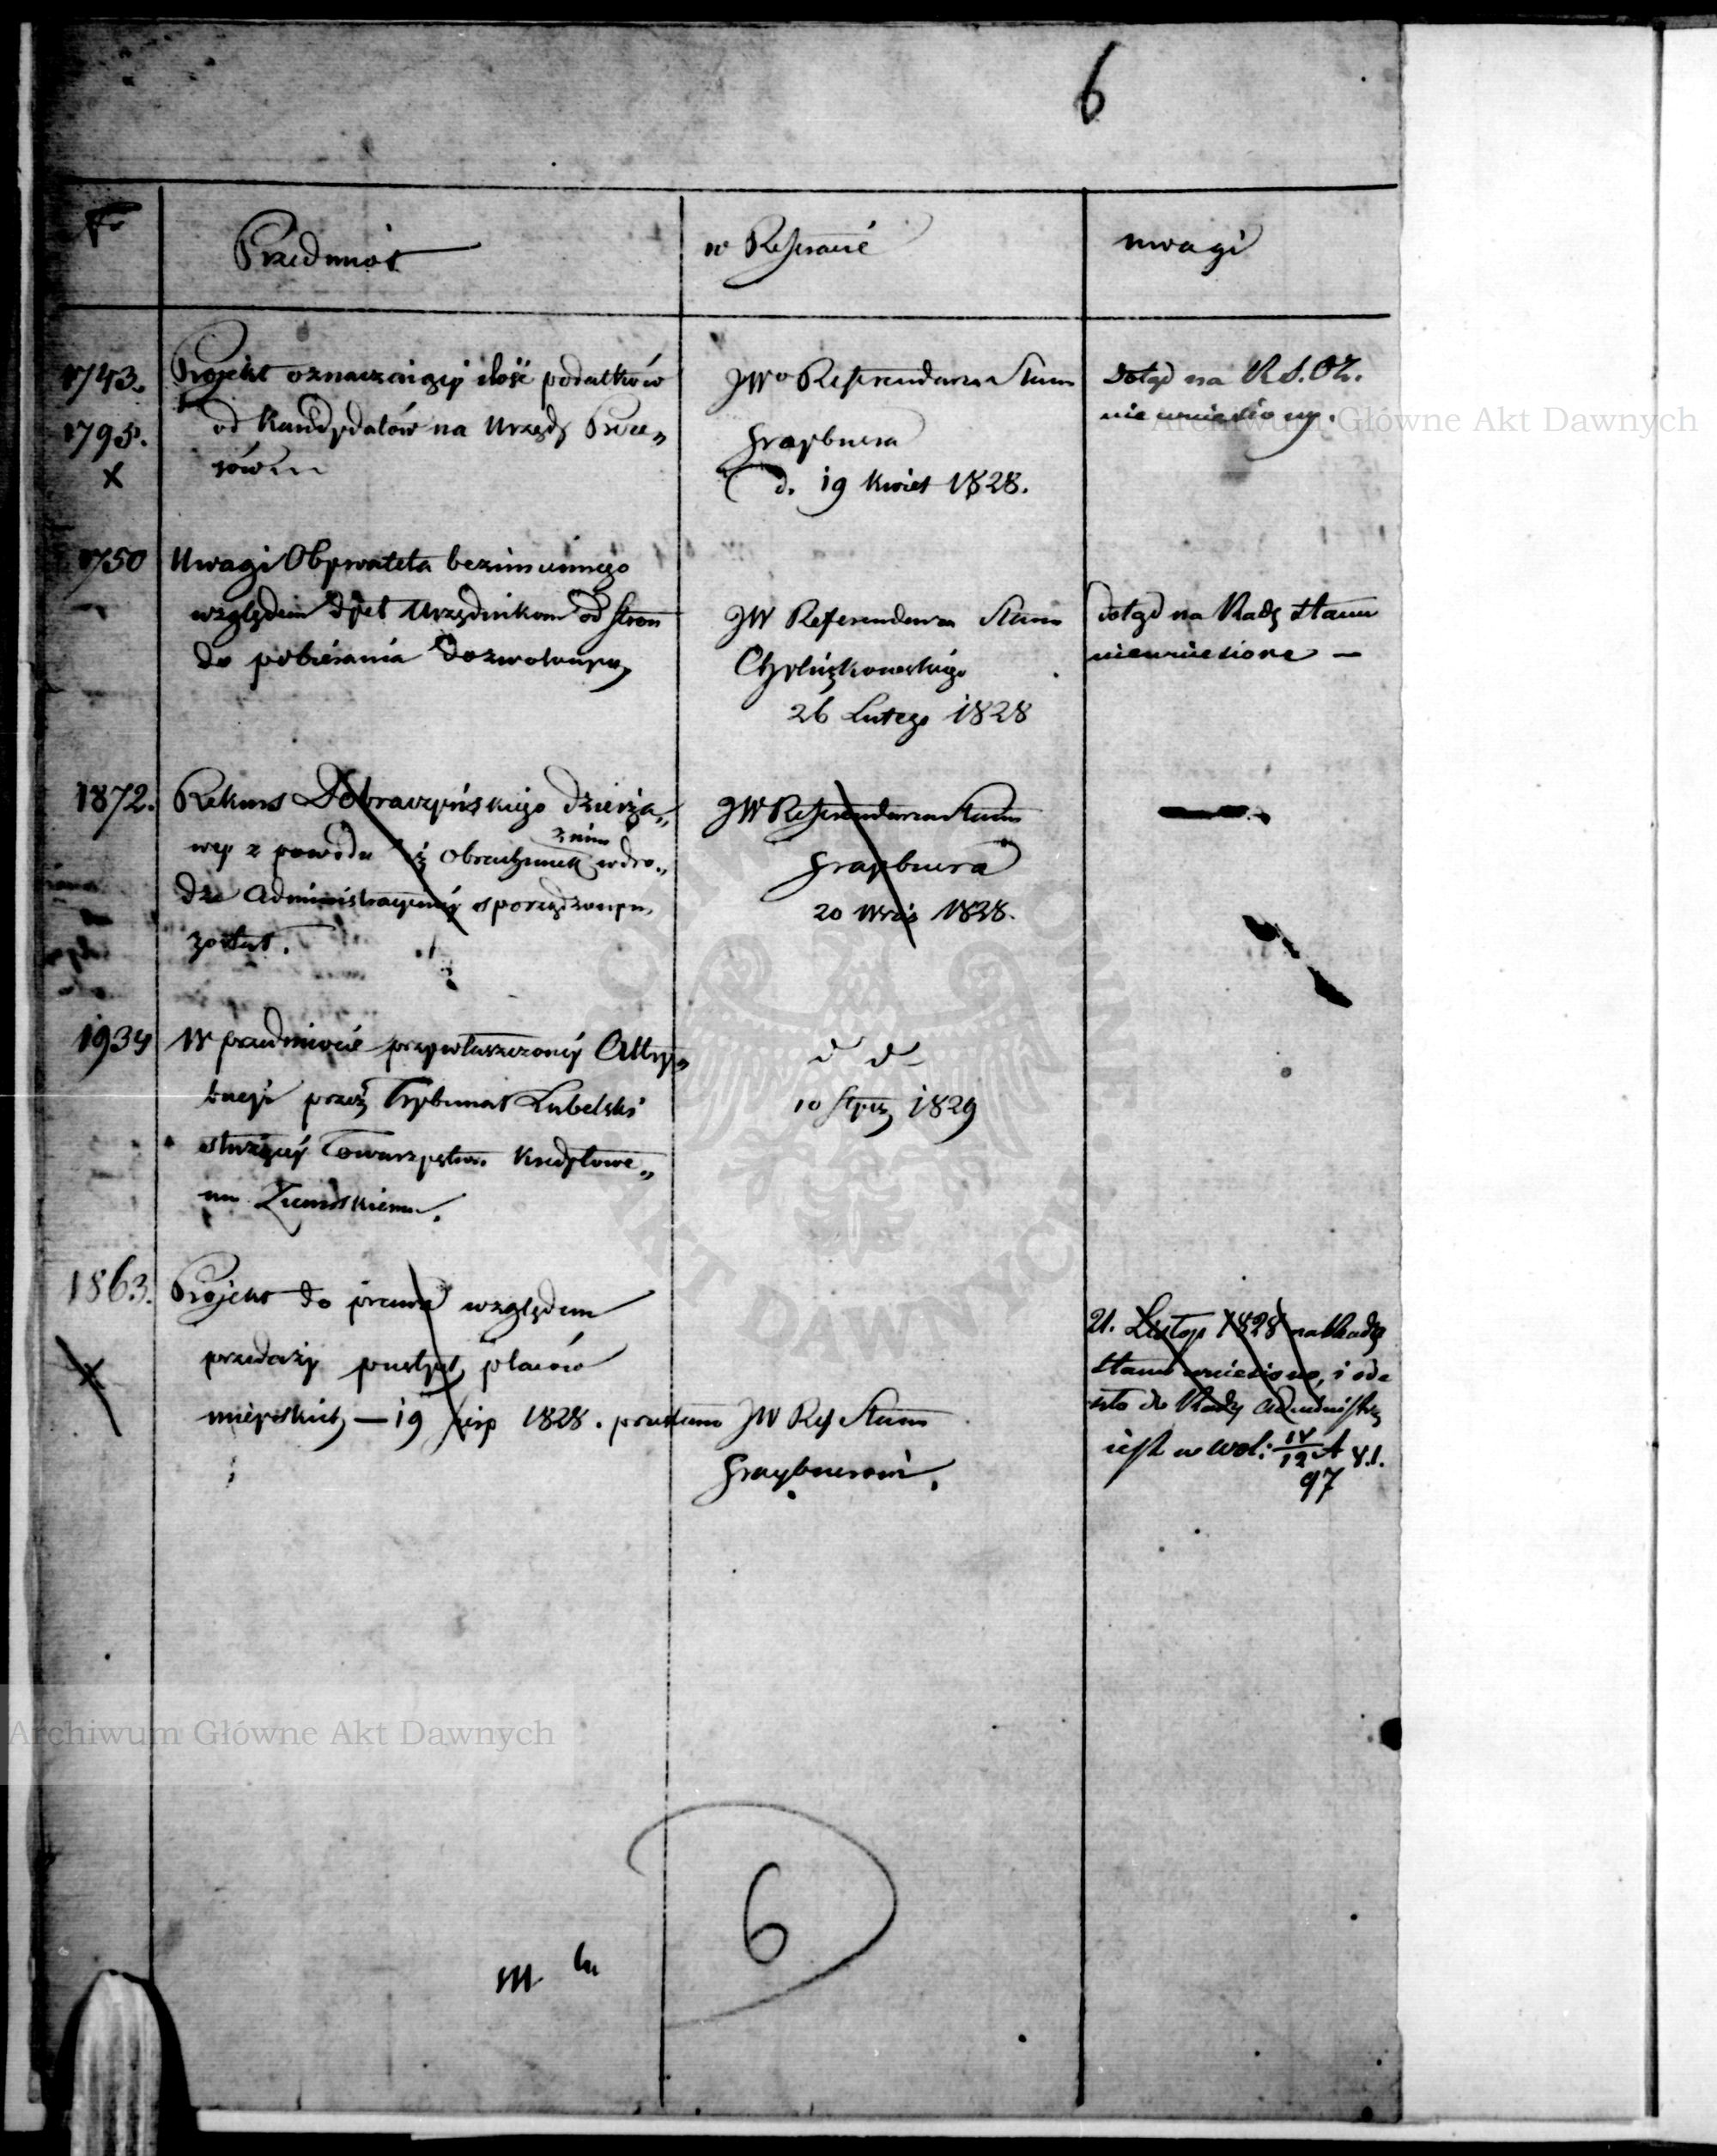 6
Przedmiot
w Referacie
uwagi
1743.
1795.
x
Projekt oznaczaiący ilość podatków
od Kandydatów na Urzędy
JWo Referendarza Stanu
Graybnera
d. 19 Kwiet 1828.
dotąd na R S. Og.
nie wniesiony.
1750
Uwagi Obywatela bezimiennego
względem opłat Urzędnikom od stron
do pobierania dozwolonych
JW Referendarza Stanu
Chyliczkowskiego
26 Lutego 1828
dotąd na Radę Stanu
niewniesione —
1872.
Rekurs Dobraczyńskiego dzierża„
wcy z powodu iż obrachunek z nim w dro„
dze Administracyiney sporządzonym
został.
JW Referendarza Stanu
Graybnera
20 Wrześ 1828.
1934
W przedmiocie przywłaszczoney Attry„
bucyi przez Trybunał Lubelski
służącey Towarzystwu Kredytowe„
mu Ziemskiemu.
d d
10 Stycz 1829
1863.
x
Projekt do prawa względem
przedaży pustych placów
mieyskich — 19 Sierp 1828. przesłano JW Ref Stanu
Graybnerowi.
21. Listop 1828 na Radę
Stanu wniesiono, i ode
szło do Rady Administr
iest w wol: IV/12 A
97
6
Archiwum Główne Akt Dawnych
Archiwum Główne Akt Dawnych
ARCHIWUM GŁÓWNE AKT DAWNYCH